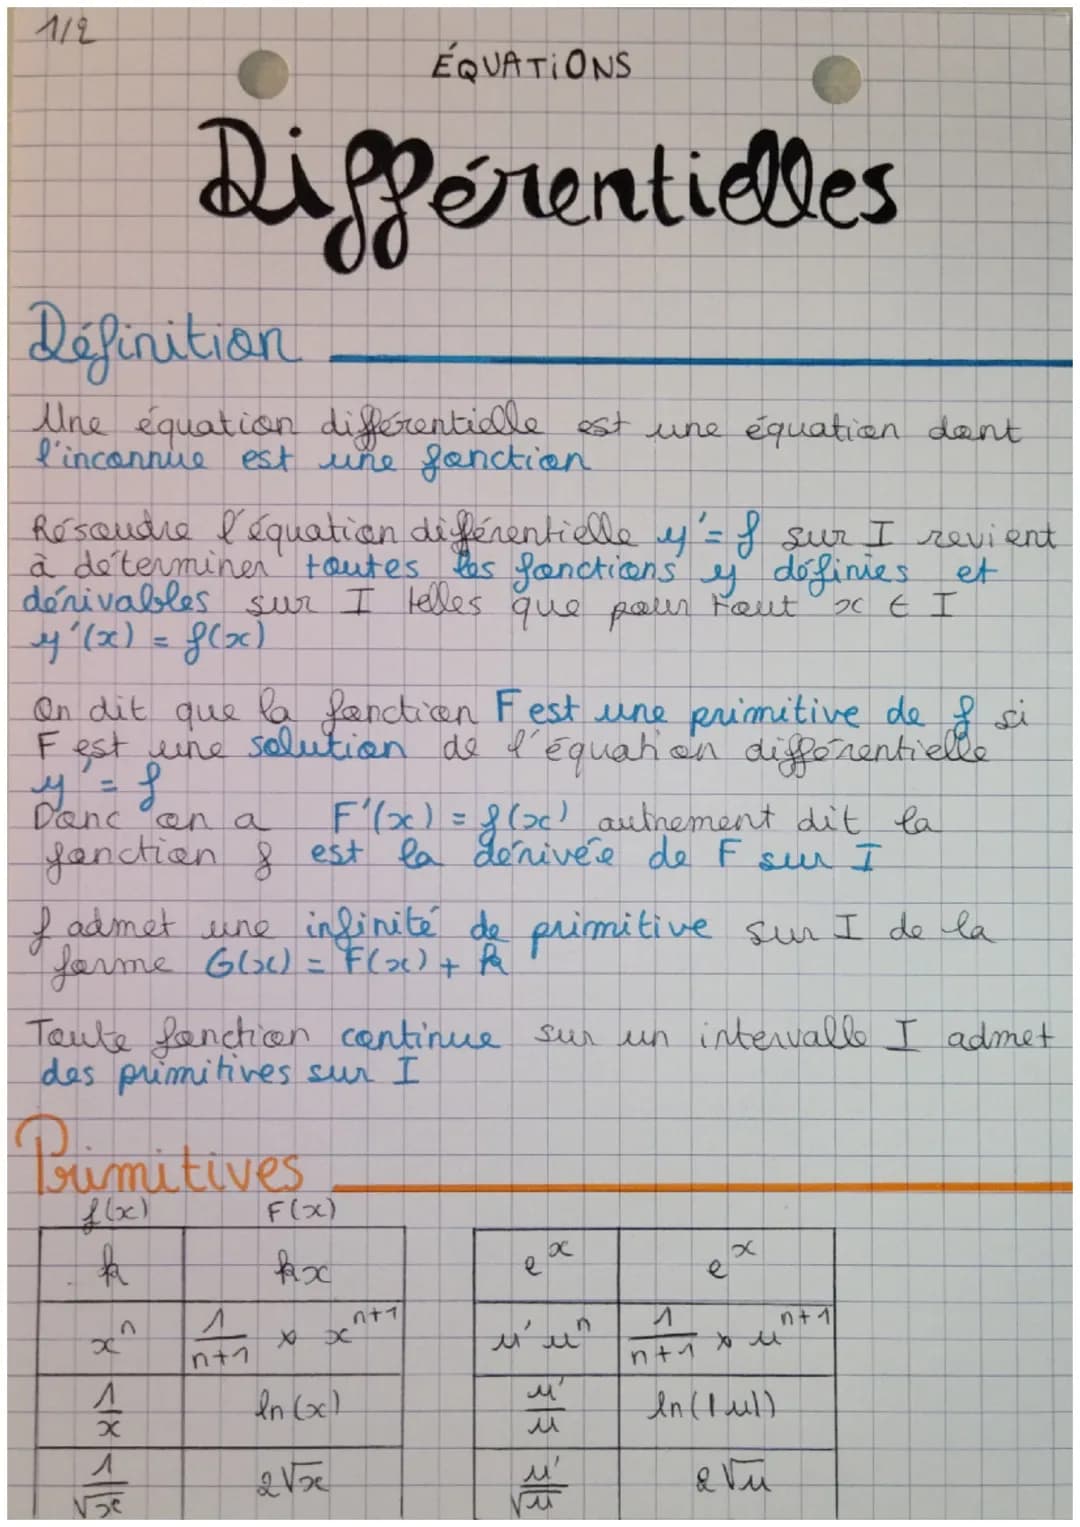 1/2
ÉQUATIONS
Différentielles
Définition
Une équation différentielle est une équation dont
l'inconnue est une fonction
Résoudre l'équation différentielle y' = f sur I revient
à déterminer toutes les fonctions y définies et
dérivables sur I telles que pour tout x ∈ I
y'(x) = f(x)
On dit que la fonction F est une primitive de f si
F est une solution de l'équation différentielle
y' = f
Donc on a F'(x) = f(x) autrement dit la
fonction f est la dérivée de F sur I
f admet une infinité de primitive sur I de la
forme G(x) = F(x) + k
Toute fonction continue sur un intervalle I admet
des primitives sur I
Primitives
f(x) F(x)
k kx e^x e^x
x^n 1/(n+1) × x^(n+1) u' u^n 1/(n+1) × u^(n+1)
1/x ln(x) u'/u ln(|u|)
1/√x 2√x u'/√u 2√u